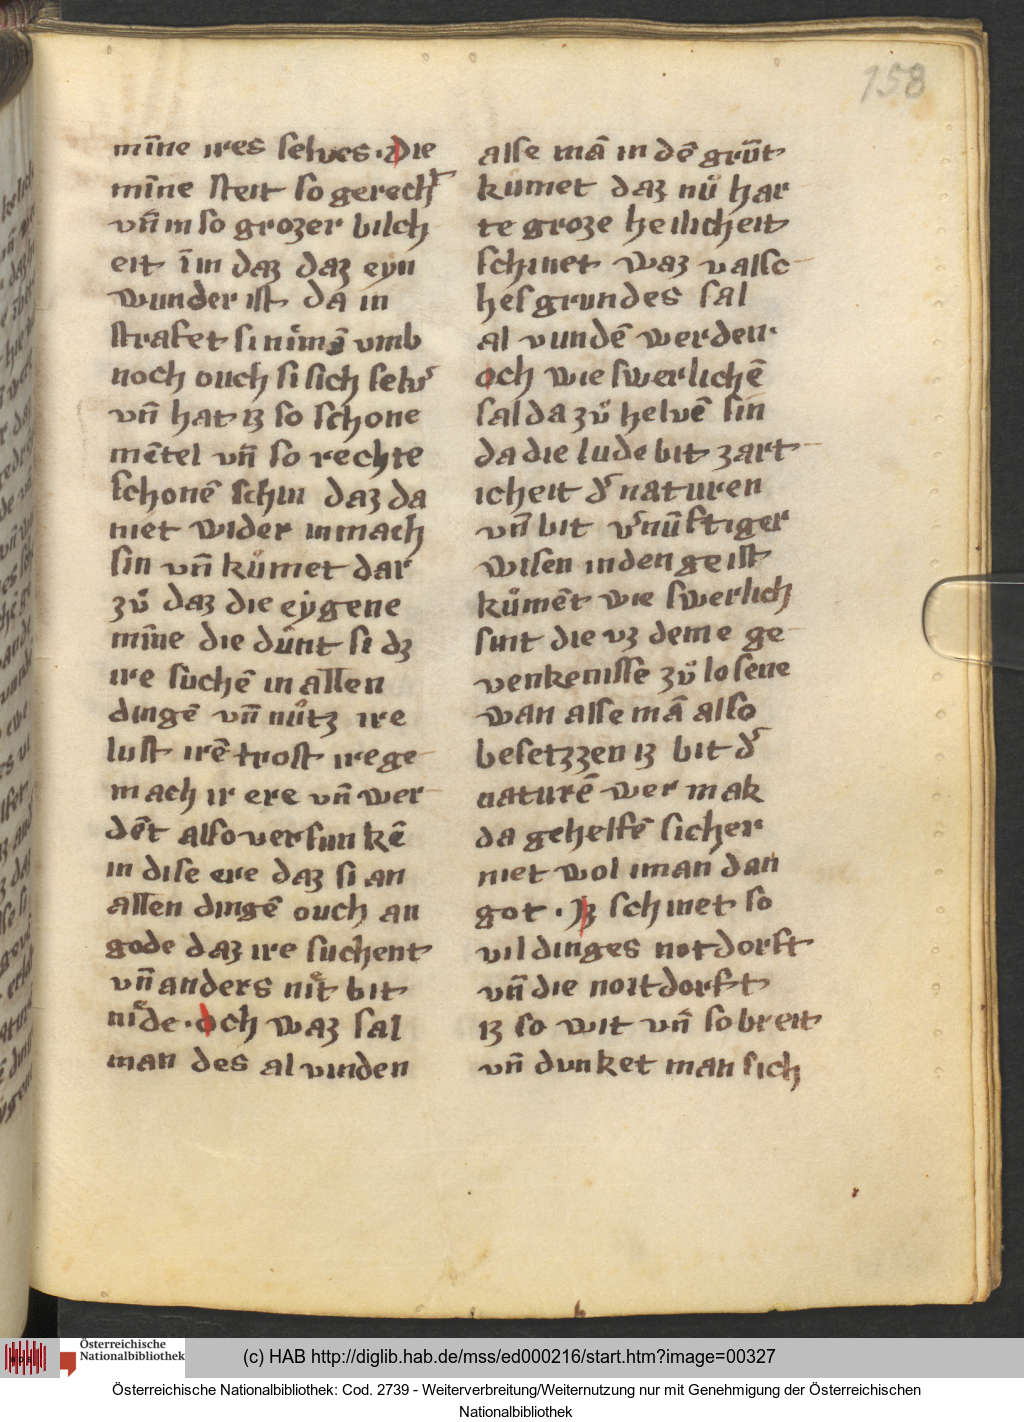 158
mīne ires selves · Die
mīne steit so gerecht
vn̄ in so grozer bilch
eit īm daz daz eyn
wunder ist da in
strafet si nimē vmb
noch ouch si sich selv
vn̄ hat iz so schone
mētel vn̄ so rechte
schonē schin daz da
niet wider inmach
sin vn̄ kůmet dar
zů daz die eẏgene
mīne die důnt si dz
ire sůchē in allen
dingē vn̄ nůtz ire
lust irē trost ire ge
mach ir ere vn̄ wer
dēt also versunkē
in dise ere daz si an
allen dingē ouch an
gode daz ire suchent
vn̄ anders nit bit
nide · Och waz sal
man des al vinden
alse mā in dē grūt
kumet daz nů har
te groze heilicheit
schinet waz valsc
hes grundes sal
al vundē werden ·
Och wie swerlichē
sal da zů helvē sin
da die lude bit zart
icheit d' naturen
vn̄ bit v'nūftiger
wisen in den geist
kůmēt wie swerlich
sint die vz deme ge
venkenisse zů losene
wan alse mā also
besetzzen iz bit d'
naturē wer mak
da gehelfē sicher
niet wol iman dan
got · Iz schinet so
vil dinges notdorft
vn̄ die noitdorft
iz so wit vn̄ so breit
vn̄ dunket man sich
Österreichische
Nationalbibliothek
(c) HAB http://diglib.hab.de/mss/ed000216/start.htm?image=00327
Österreichische Nationalbibliothek: Cod. 2739 - Weiterverbreitung/Weiternutzung nur mit Genehmigung der Österreichischen
Nationalbibliothek